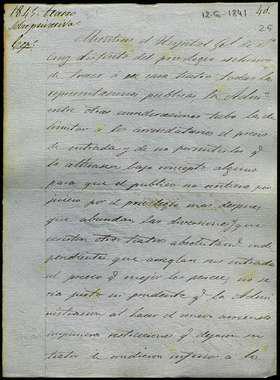 1845. Teatro
12-6-1841
4d.
25
Mientras el Hospital Gral de Sta
Cruz disfrutó del privilegio esclusivo
de tener en su teatro todas las
representaciones publicas la Admon
entre otras consideraciones tubo la de
limitar a los arrendatarios el precio
de entrada y de no permitirles qe
la alterasen bajo concepto alguno
para que el publico no sufriera per
juicio por el privilegio mas despues
que abundan las diversiones y que
existen otros teatros absolutamte inde
pendientes que arreglan su entrada
al precio qe mejor les parece, no se
ria justo ni prudente qe la Admi
nistracion al hacer el nuevo arriendo
impusiera restricciones qe dejasen su
teatro de condicion inferior a los